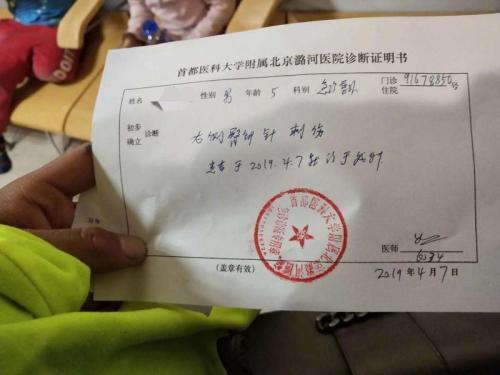 首都医科大学附属北京潞河医院诊断证明书
姓名 性别 男 年龄 5 科别 急诊 门诊 住院 号
初步 确立 诊断 右侧臀部针刺伤
患者于2019.4.7 就诊于我
首都医科大学附属北京潞河医院
医师
6034
(盖章有效) 2019年4月7日